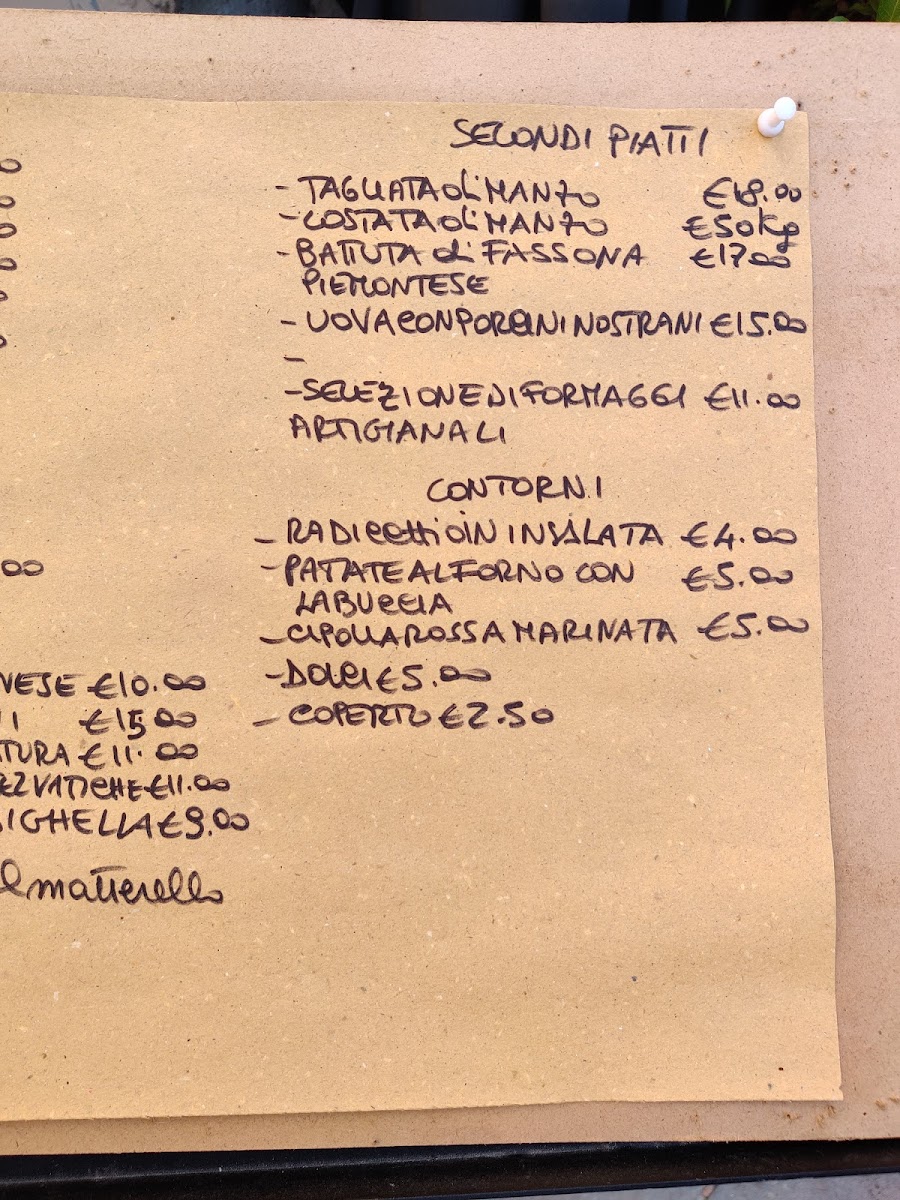 SECONDI PIATTI
- TAGLIATA di MANZO €18.00
- COSTATA di MANZO €50Kg
- BATTUTA di FASSONA €17.00
PIEMONTESE
- UOVA CON PORCINI NOSTRANI €15.00
-
- SELEZIONE DI FORMAGGI €11.00
ARTIGIANALI
CONTORNI
- RADICCHIO IN INSALATA €4.00
- PATATE AL FORNO CON €5.00
LA BUCCIA
- CIPOLLA ROSSA MARINATA €5.00
- DOLCI €5.00
- COPERTO €2.50
00
NESE €10.00
I €15.00
TURA €11.00
€11.00
SIGHELLA €9.00
l matterello